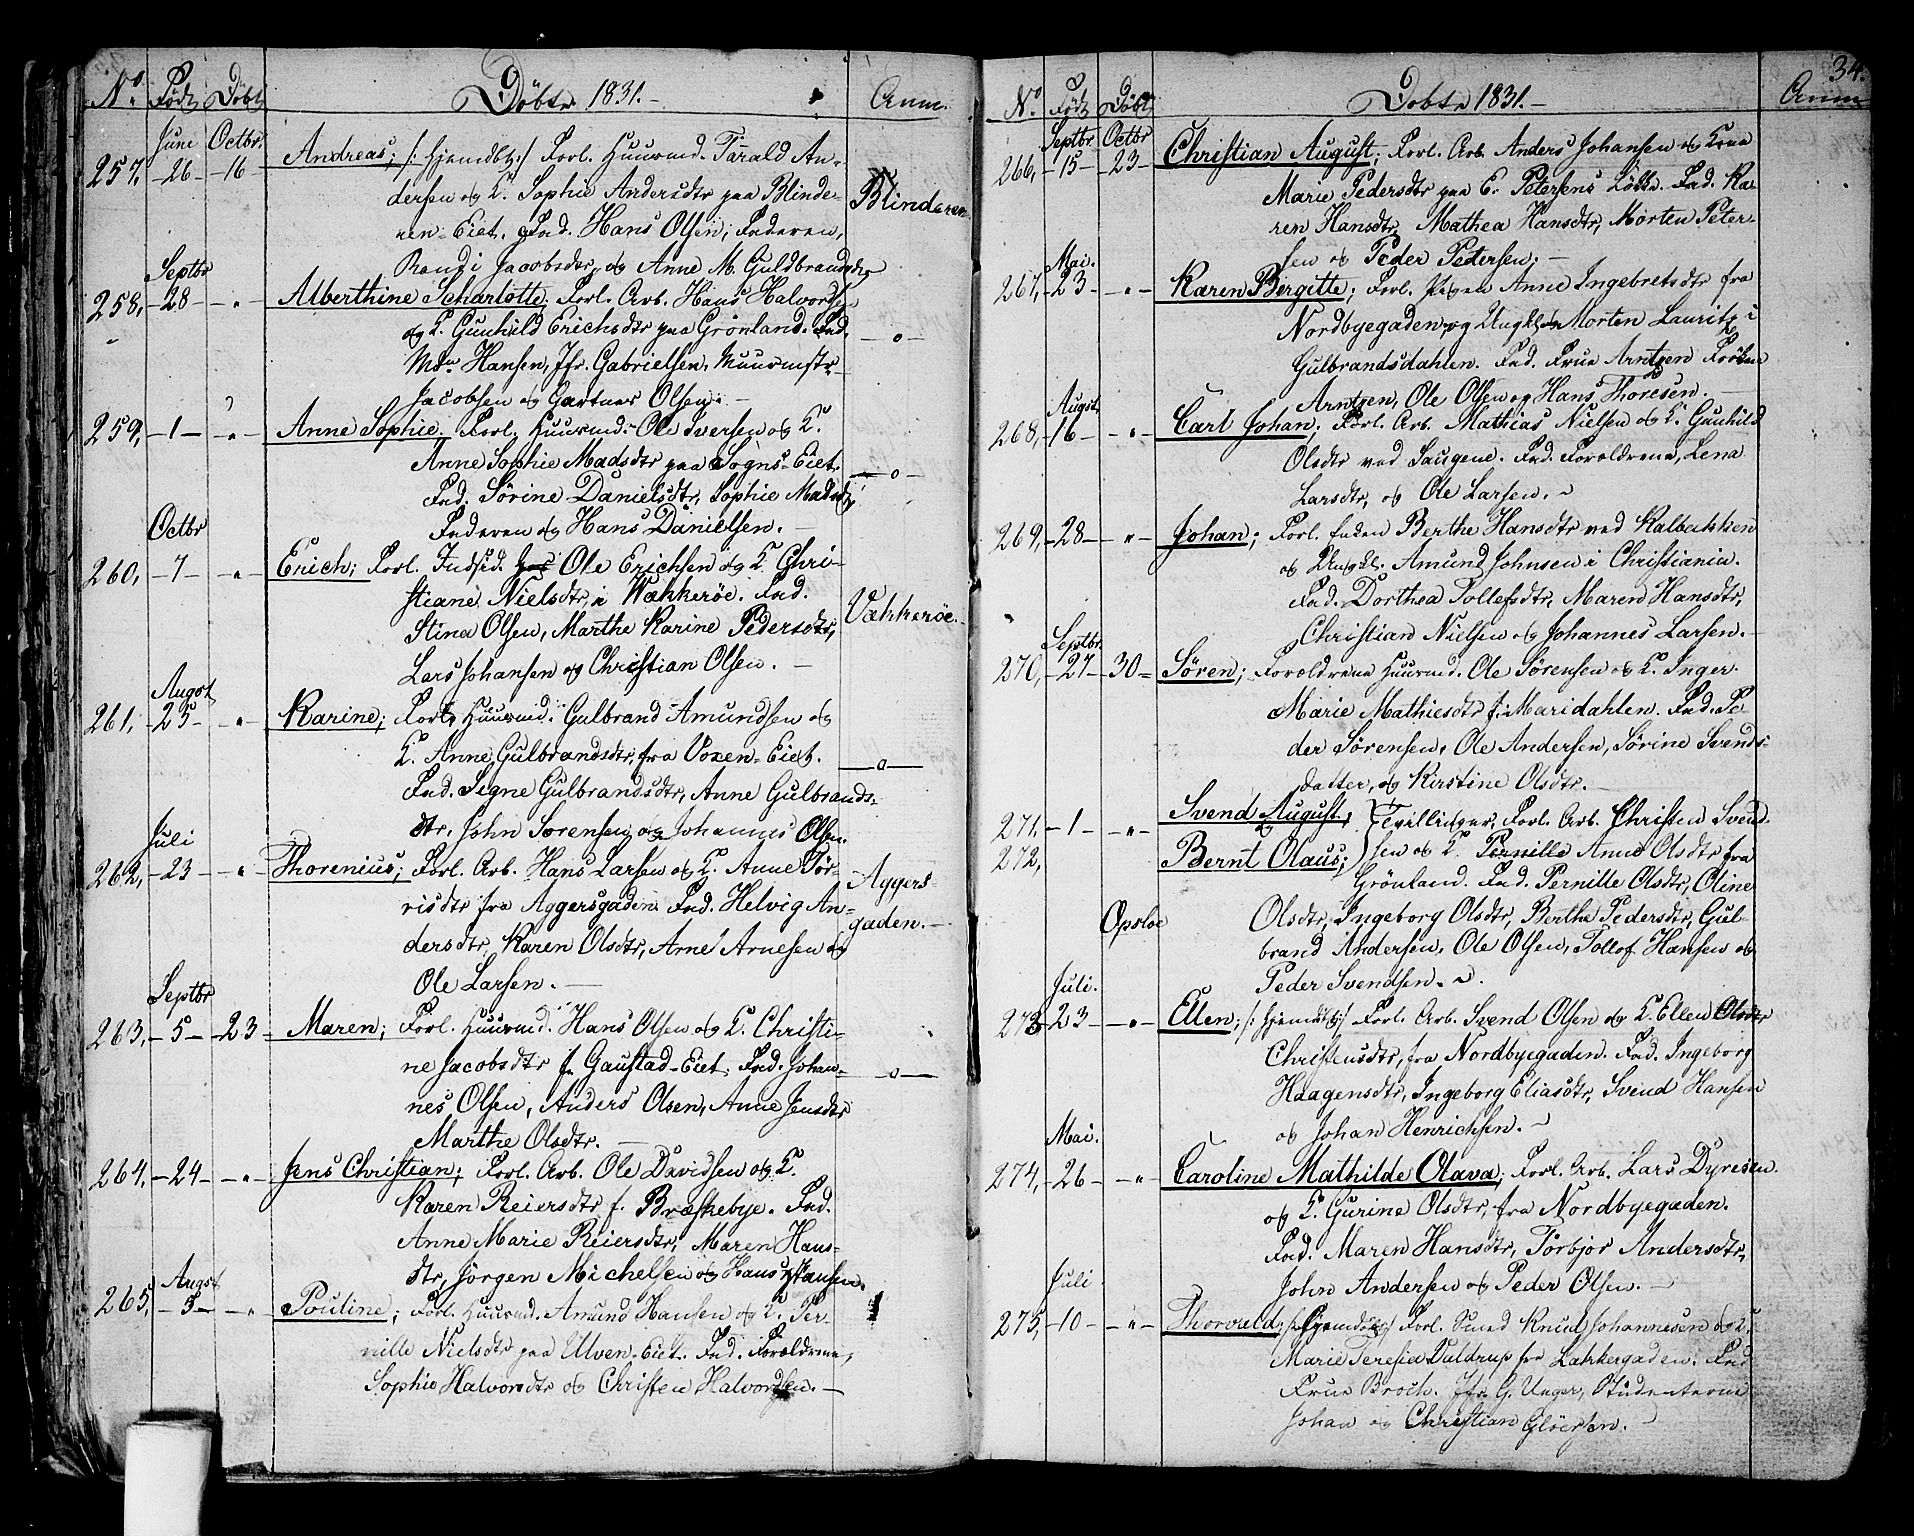 No. Födt Döbt Döbte 1831.- Anm.
Juni Octbr.
257, -26- -16- Andreas; /: hjemdbt :/ Forl. Huusmd. Tarald An-
dersen og K. Sophie Andersdtr paa Blinde- Blinderen
ren-Eiet. Fad. Hans Olsen, Faderen,
Randi Jacobsdtr, og Anne M. Guldbrandsdtr
Septbr
258, -28- -"- Alberthine Scharlotte, Forl. Arb. Hans Halvorsen
og K. Gunhild Erichsdtr paa Grönland. Fad. -o-
Mdm Hansen, Jfr. Gabrielsen, Muurmstr
Jacobsen og Gartner Olsen. -
259, -1- -"- Anne Sophie. Forl. Huusmd. Ole Iversen og K.
Anne Sophie Madsdtr paa Sogns-Eiet. -o-
Fad. Sörine Danielsdtr, Sophie Madsdtr,
Faderen og Hans Danielsen. -
Octbr
260, -7- -"- Erich; Forl. Indsid. Ole Erichsen og K. Chri-
stiane Nielsdtr, i Wækkeröe. Fad. Vækkeröe.
Stina Olsen, Marthe Karine Pedersdtr,
Lars Johansen og Christian Olsen. -
Augst
261, -25- -"- Karine; Forl. Huusmd. Gulbrand Amundsen og
K. Anne Gulbrandsdtr, fra Voxen-Eiet. -o-
Fad. Signe Gulbrandsdtr, Anne Gulbrands-
dtr, John Sorensen og Johannes Olsen.
Juli
262, -23- -"- Thorenius; Forl. Arb. Hans Larsen og K. Anne Tör- Aggers-
risdtr fra Aggersgaden. Fad. Helvig An- gaden.-
dersdtr, Karen Olsdtr, Arne Arnesen og
Ole Larsen. -
Septbr
263, -5- -23- Maren; Forl. Huusmd. Hans Olsen og K. Christi-
ne Jacobsdtr f. Gaustad-Eiet, Fad. Johan- -o-
nes Olsen, Anders Olsen, Anne Jensdtr
Marthe Olsdtr. -
264, -24- -"- Jens Christian; Forl. Arb. Ole Davidsen og K.
Karen Reiersdtr f. Bræskebye. Fad.
Anne Marie Reiersdtr, Maren Hans-
dtr, Jörgen Michelsen og Hans Hansen.
Augst
265, -5- -"- Pouline; Forl. Huusmd. Amund Hansen og K. Per-
nille Nielsdtr paa Ulven-Eiet. Fad. Forældrene,
Sophie Halvorsdtr og Christen Halvordsen. -
34.
No. Födt Döbt Döbte 1831.- Anm
Septbr Octbr
266, -15- -23- Christian August; Forl. Arb. Anders Johansen og Kone
Marie Pedersdtr paa E. Petersens Lökke. Fad. Ka-
ren Hansdtr, Mathea Hansdtr, Morten Peter-
sen og Peder Pedersen. -
Mai.
267, -23- -"- Karen Birgitte; Forl. Pigen Anne Ingebretsdtr fra
Nordbyegaden, og Ungkl. Morten Lauritz i
Gulbrandsdahlen. Fad. Frue Arntzen Fröken
Arntzen, Ole Olsen og Hans Thoresen. -
Augst,
268, -16- -"- Carl Johan; Forl. Arb. Mathias Nielsen og K. Gunhild
Olsdtr ved Saugene. Fad. Forældrene, Lena
Larsdtr, og Ole Larsen. -
269, -28- -"- Johan; Forl. Enken Berthe Hansdtr ved Kalbakken
og Ungkl. Amund Johnsen i Christiania.
Fad. Dorthea Tollefsdtr, Maren Hansdtr,
Christian Nielsen og Johannes Larsen. -
Septbr.
270, -27- -30- Sören; Forældrene Huusmd. Ole Sörensen og K. Inger
Marie Mathiesdtr f. Maridahlen. Fad. Pe-
der Sörensen, Ole Andersen, Sörine Svends-
datter, og Kirstine Olsdtr. -
271, -1- -"- Svend August, } Tvillinger, Forl. Arb. Christen Svend-
272, Bernt Olaus; } sen og K. Pernille Anne Olsdtr fra
Grönland. Fad. Pernille Olsdtr, Oline
Opsloe Olsdtr, Ingeborg Olsdtr, Berthe Pedersdtr, Gul-
brand Andersen, Ole Olsen, Tollof Hansen og
Peder Svendsen. -
Juli.
273 -23- -"- Ellen; /: hjemdbt :/ Forl. Arb. Svend Olsen og K. Ellen Olsdtr
Christensdtr, fra Nordbyegaden. Fad. Ingeborg
Haagensdtr, Ingeborg Eliasdtr, Svend Hansen
og Johan Henrichsen. -
Mai.
274, -26- -"- Caroline Mathilde Olava; Forl. Arb. Lars Dyresen
og K. Gurine Olsdtr, fra Nordbyegaden.
Fad. Maren Hansdtr, Torbjor Andersdtr,
John Andersen og Peder Olsen. -
Juli
275, -10- -"- Thorvald; /: hjemdbt :/ Forl. Smed Knud Johannesen og K.
Marie Teresia Daldrup fra Lakkergaden. Fad
Frue Broch. Jfr. G. Unger, Studenterne
Johan og Christian Glöersen. -